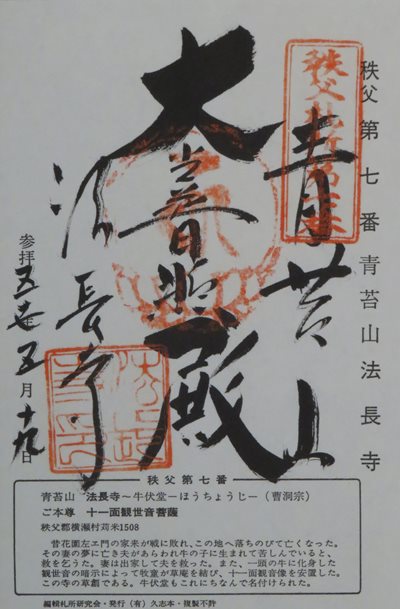 秩父第七番青苔山法長寺
秩父札所第七番
青苔山
大光普照殿
法長寺
参拝五七年五月十九日
秩父第七番
青苔山 法長寺～牛伏堂－ほうちょうじ－（曹洞宗）
ご本尊 十一面観世音菩薩
秩父郡横瀬村苅米1508
昔花園左ェ門の家来が戦に敗れ、この地へ落ちのびて亡くなった。
その妻の夢に亡き夫があらわれ牛の子に生まれて苦しんでいると、
救を乞うた。妻は出家して夫を救った。また、一頭の牛に化身した
観世音の暗示によって牧童が草庵を結び、十一面観音像を安置した。
この寺の草創である。牛伏堂もこれにちなんで名付けられた。
編輯札所研究会・発行（有）久志本・複製不許